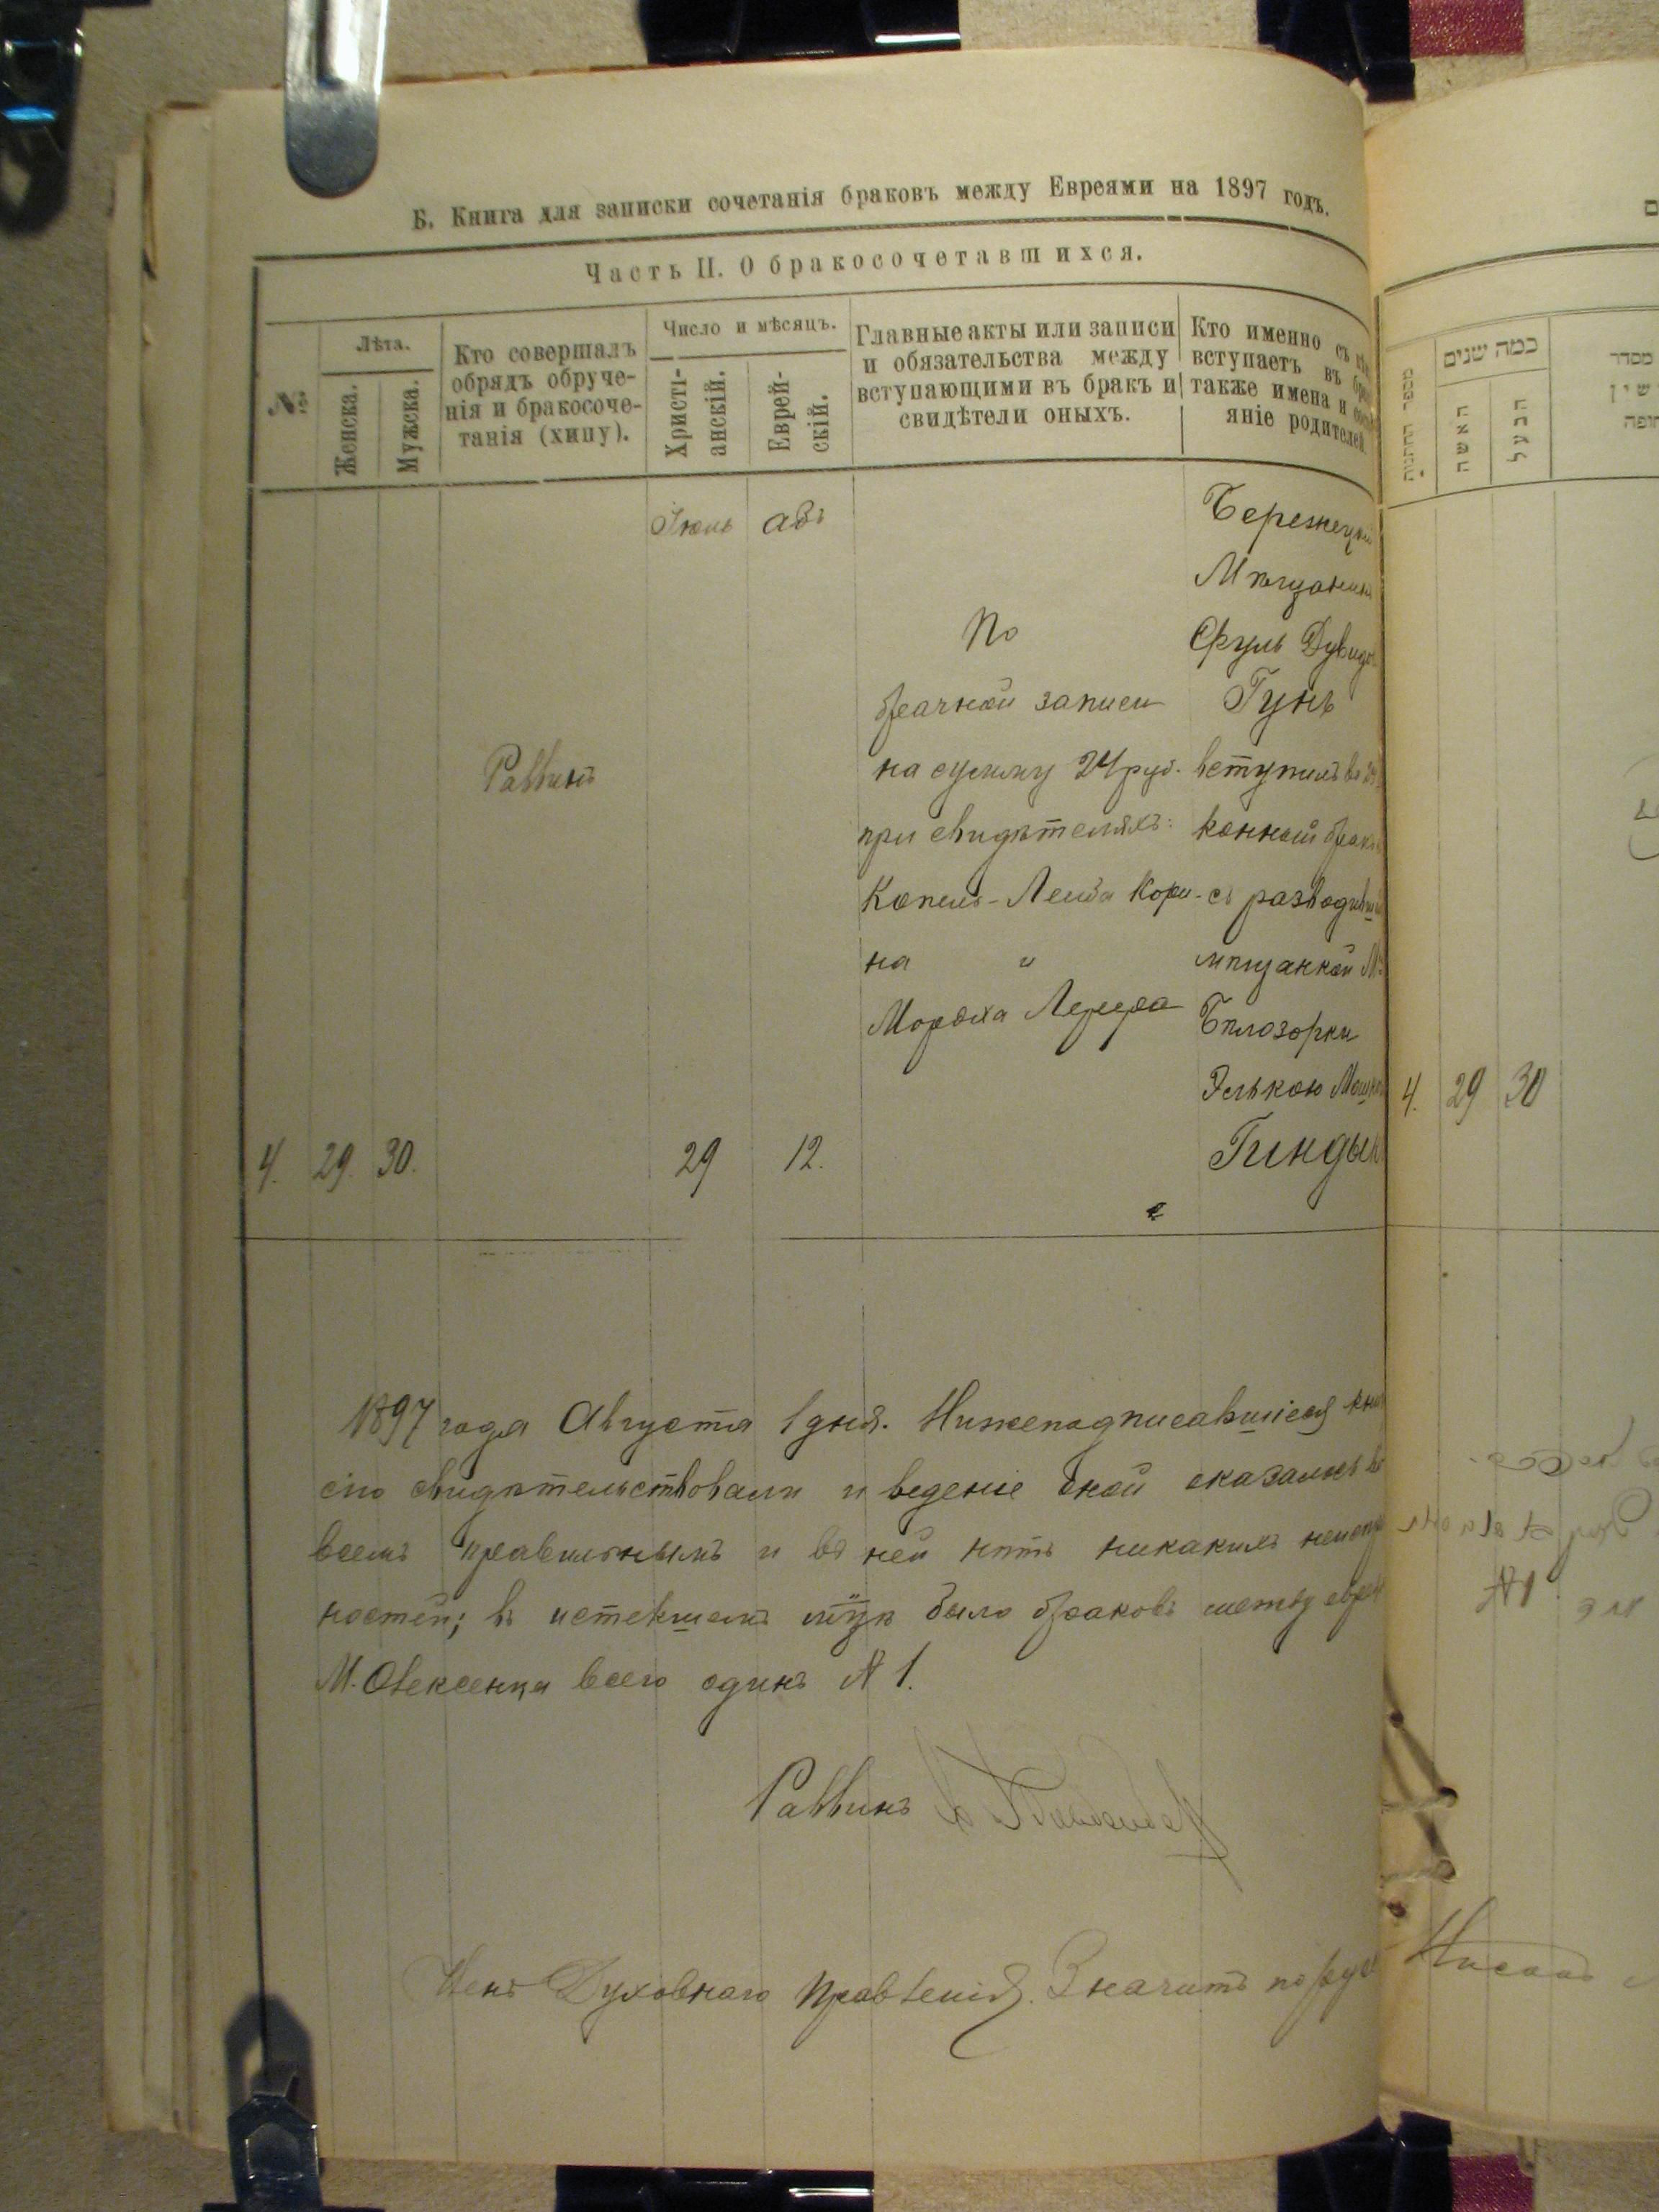 Б. Книга для записки сочетанія браковъ между Евреями на 1897 годъ.
Часть II. О бракосочетавшихся.
№
Лѣта.
Женска.
Мужска.
Кто совершалъ
обрядъ обруче-
нія и бракосоче-
танія (хипу).
Число и мѣсяцъ.
Христі-
анскій.
Еврей-
скій.
Главные акты или записи
и обязательства между
вступающими въ бракъ и
свидѣтели оныхъ.
Кто именно съ
вступаетъ въ
также имена и
яніе родителей.
Іюль
Авъ
Раввинъ
По
брачной записи
на сумму 24 руб.
при свидѣтеляхъ:
Копель-Лейба Кори-
на и
Мордха Лернера
Бережецкій
Мѣщанинъ
Сруль Дувидов
Гунъ
вступилъ въ за
конной бракъ
съ разводивш
мѣщанкой М.
Бѣлозорки
Элькою Мошк
Гиндын
4. 29. 30. 29 12.
1897 года Августа 1 дня. Нижеподписавшіеся кни
сію свидѣтельствовали и веденіе оной оказалось во
всемъ правильнымъ и въ ней нѣтъ никакихъ неиспр
ностей; въ истекшемъ м-цѣ было браковъ между евре
М. Олексенца всего одинъ № 1.
Раввинъ
Членъ Духовнаго Правленія. Значитъ по
כמה שנים
מספר החתונות
האשה
הבעל
מסדר
4. 29 30